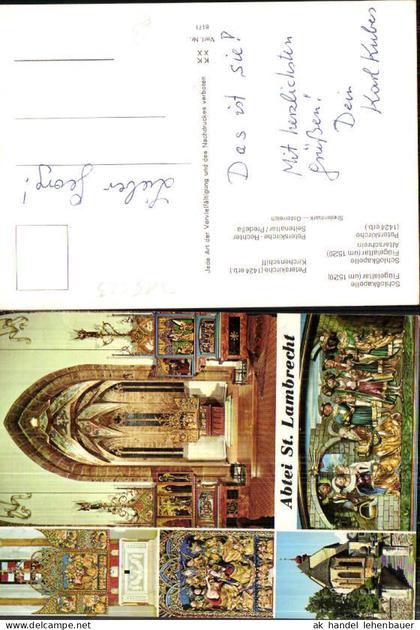 Lieber Georg!
Das ist „sie"!
Mit herzlichsten
Grüßen!
Dein
Karl Kubes
Jede Art der Vervielfältigung und des Nachdruckes verboten
Verl.-Nr.:
8171
Schloßkapelle
Flügelaltar (um 1520)
Schloßkapelle
Flügelaltar (um 1520)
Altarschrein
Peterskirche
(1424 erb.)
Peterskirche (1424 erb.)
Kirchenschiff
Peterskirche - Rechter
Seitenaltar / Predella
Steiermark — Österreich
Abtei St. Lambrecht
ak handel lehenbauer